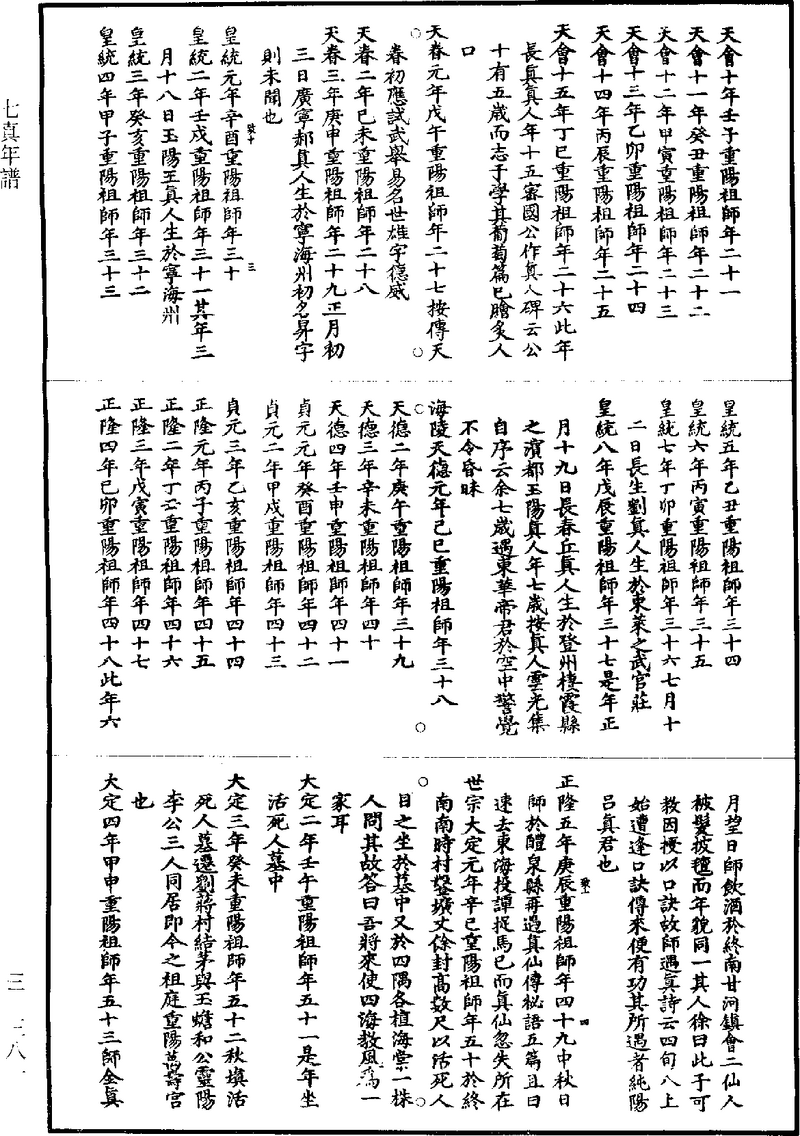 天會十年壬子重陽祖師年二十一
天會十一年癸丑重陽祖師年二十二
天會十二年甲寅重陽祖師年二十三
天會十三年乙卯重陽祖師年二十四
天會十四年丙辰重陽祖師年二十五
天會十五年丁巳重陽祖師年二十六此年
長真真人年十五審國公作真人碑云公
十有五歲而志于學其葡萄篇已膾炙人
口
天眷元年戊午重陽祖師年二十七按傳天
眷初應試武舉易名世雄字德威
天眷二年己未重陽祖師年二十八
天眷三年庚申重陽祖師年二十九正月初
三日廣寧郝真人生於寧海州初名昇字
則未聞也
皇統元年辛酉重陽祖師年三十
皇統二年壬戌重陽祖師年三十一其年三
月十八日玉陽王真人生於寧海州
皇統三年癸亥重陽祖師年三十二
皇統四年甲子重陽祖師年三十三
皇統五年乙丑重陽祖師年三十四
皇統六年丙寅重陽祖師年三十五
皇統七年丁卯重陽祖師年三十六七月十
二日長生劉真人生於東萊之武官莊
皇統八年戊辰重陽祖師年三十七是年正
月十九日長春丘真人生於登州棲霞縣
之濱都玉陽真人年七歲按真人雲光集
自序云余七歲遇東華帝君於空中警覺
不令昏昧
海陵天德元年己巳重陽祖師年三十八
天德二年庚午重陽祖師年三十九
天德三年辛未重陽祖師年四十
天德四年壬申重陽祖師年四十一
貞元元年癸酉重陽祖師年四十二
貞元二年甲戌重陽祖師年四十三
貞元三年乙亥重陽祖師年四十四
正隆元年丙子重陽祖師年四十五
正隆二年丁丑重陽祖師年四十六
正隆三年戊寅重陽祖師年四十七
正隆四年己卯重陽祖師年四十八此年六
月望日師飲酒於終南甘河鎮會二仙人
被髮披氊而年貌同一其人徐曰此子可
教因授以口訣故師遇真詩云四旬八上
始遭逢口訣傳來便有功其所遇者純陽
呂真君也
正隆五年庚辰重陽祖師年四十九中秋日
師於醴泉縣再遇真仙傳秘語五篇且曰
速去東海投譚捉馬已而真仙忽失所在
世宗大定元年辛巳重陽祖師年五十於終
南南時村鑿壙丈餘封高數尺以活死人
目之坐於墓中又於四隅各植海棠一株
人問其故答曰吾將來使四海教風為一
家耳
大定二年壬午重陽祖師年五十一是年坐
活死人墓中
大定三年癸未重陽祖師年五十二秋填活
死人墓遷劉蔣村結茅與玉蟾和公靈陽
李公三人同居即今之祖庭重陽萬壽宮
也
大定四年甲申重陽祖師年五十三師全真
七真年譜
三 — 三八一